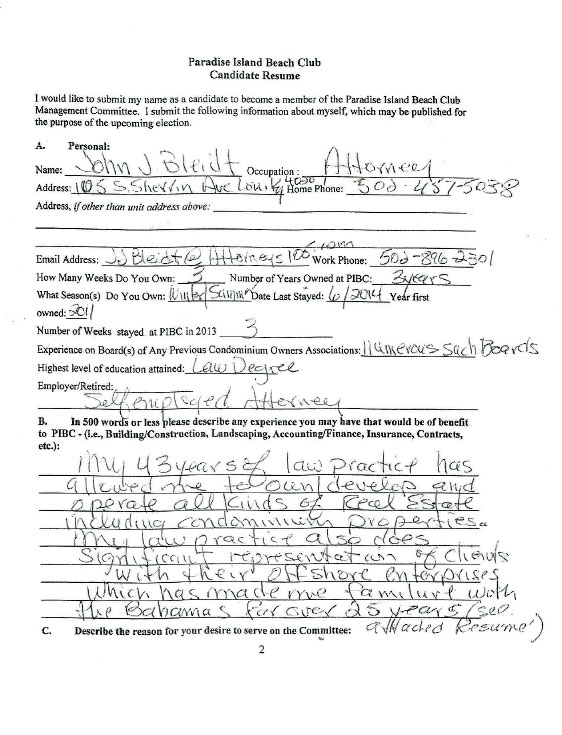 Paradise Island Beach Club
Candidate Resume
I would like to submit my name as a candidate to become a member of the Paradise Island Beach Club
Management Committee. I submit the following information about myself, which may be published for
the purpose of the upcoming election.
A. Personal:
Name: John J Bleidt Occupation : Attorney
Address: 105 S. Sherrin Ave Lou. Ky 40 Home Phone: 502-457-5038
Address, if other than unit address above:
Email Address: JJBleidt@Attorneys100 .com Work Phone: 502-896-2301
How Many Weeks Do You Own: 3 Number of Years Owned at PIBC: 3 years
What Season(s) Do You Own: Winter/Summr Date Last Stayed: 6/2014 Year first
owned: 2011
Number of Weeks stayed at PIBC in 2013 3
Experience on Board(s) of Any Previous Condominium Owners Associations: Numerous Such Boards
Highest level of education attained: Law Degree
Employer/Retired:
Self employed Attorney
B. In 500 words or less please describe any experience you may have that would be of benefit
to PIBC - (i.e., Building/Construction, Landscaping, Accounting/Finance, Insurance, Contracts,
etc.):
My 43 years of law practice has
allowed me to own/develop and
operate all kinds of Real Estate
including condominium properties.
My law practice also does
Significant representation of Clients
with their offshore enterprises
which has made me familure with
the Bahamas for over 25 years (see
attached Resume)
C. Describe the reason for your desire to serve on the Committee:
2